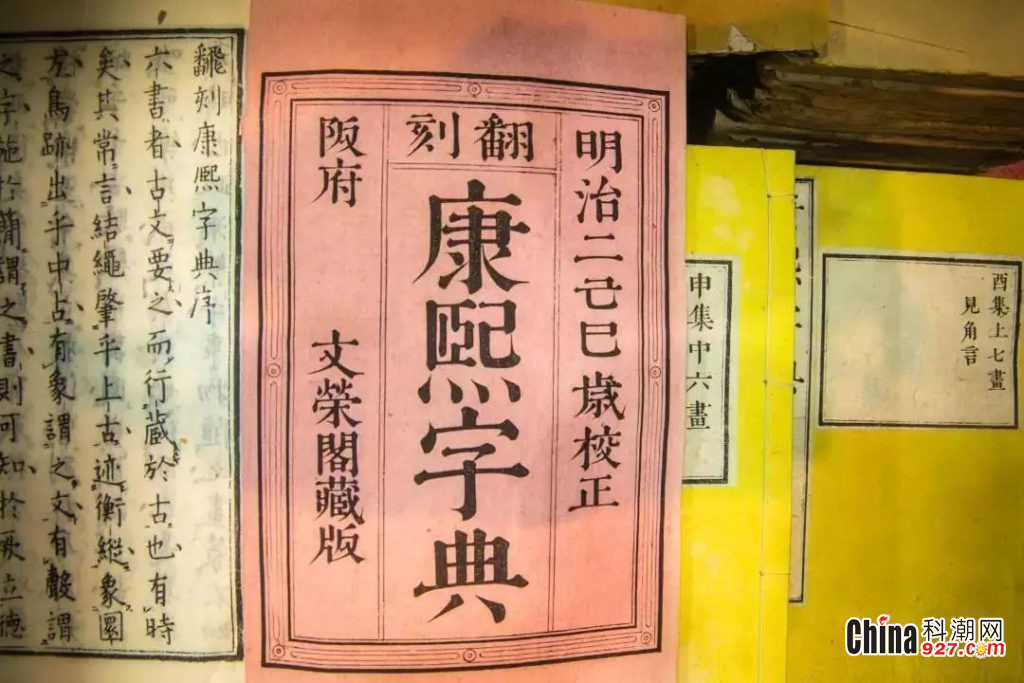 酉集上七畫
見角言
申集中六畫
明治二己巳歳校正
翻刻
康熙字典
阪府 文榮閣藏版
飜刻康熙字典序
六書者古文要之而行蔵於古也有時
矣其常言結繩肇乎上古迹衡縱象圜
方鳥跡出乎中占有象謂之文有聲謂
之字施於簡謂之書則可知於厥立德
China科潮网
927.com